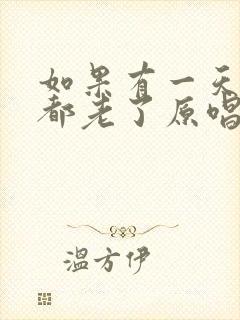 如果有一天
都老了原唱
温方伊